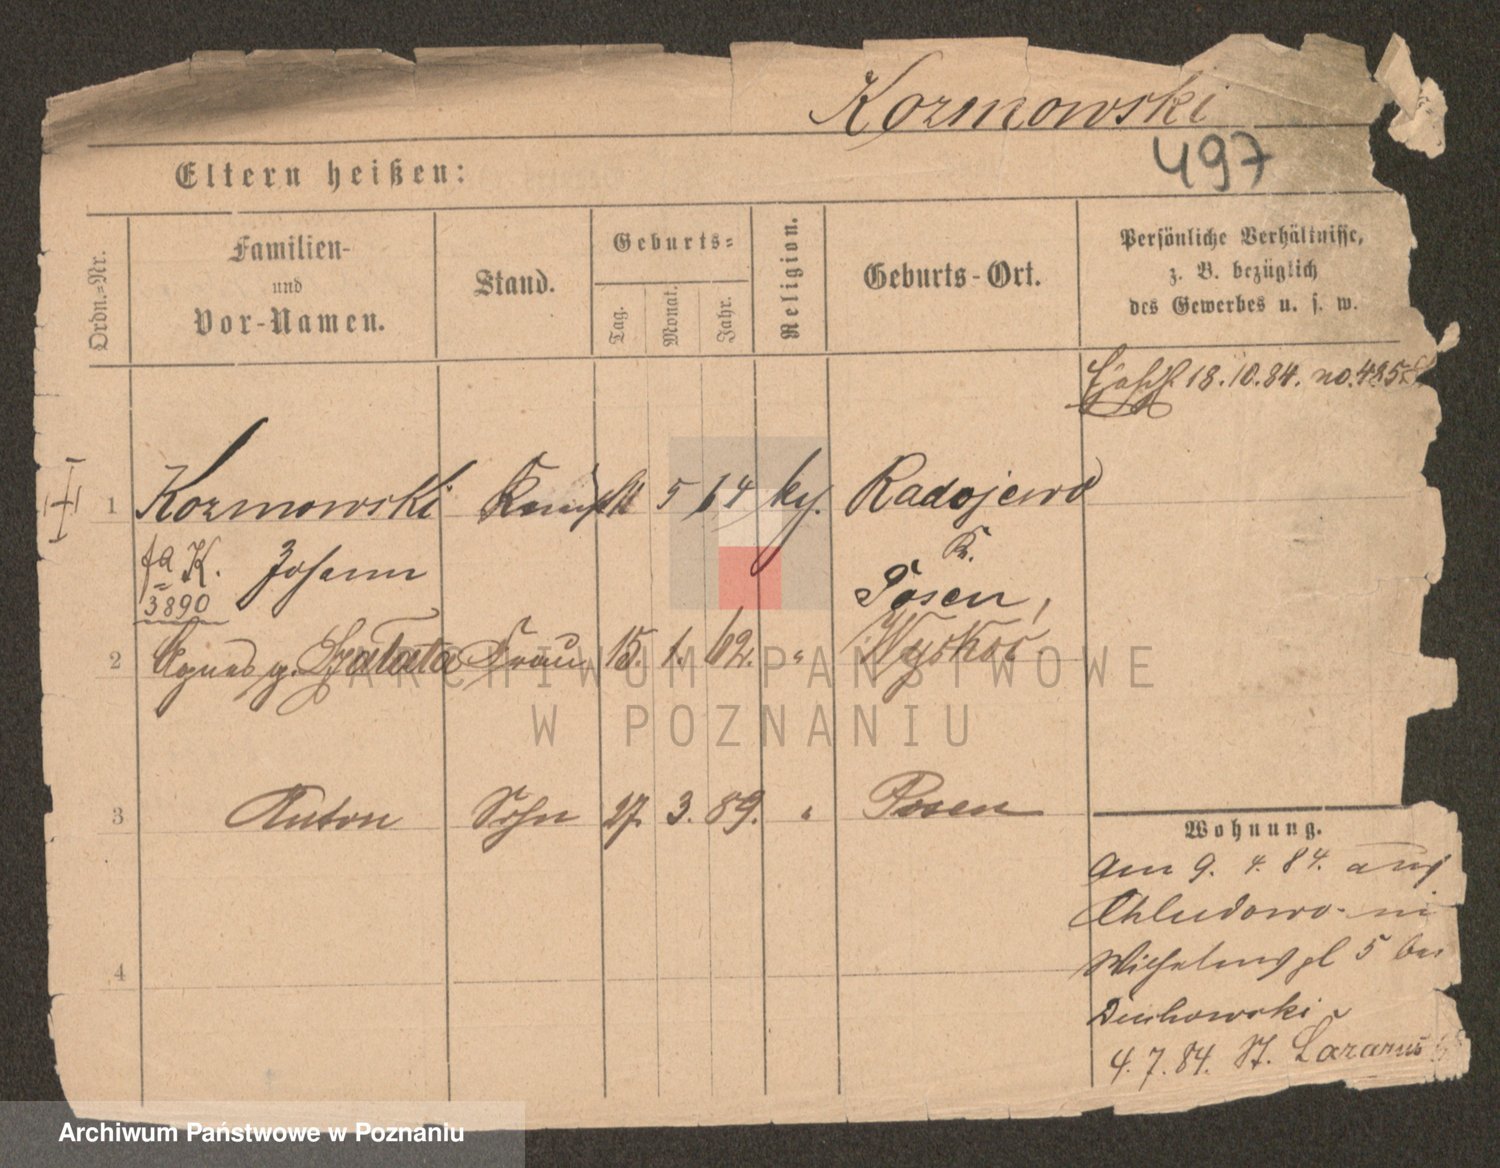 Kozmowski
497
Eltern heißen:
Ordn.-Nr.
Familien-
und
Vor-Namen.
Stand.
Geburts-
Tag.
Monat.
Jahr.
Religion.
Geburts-Ort.
Persönliche Verhältnisse,
z. B. bezüglich
des Gewerbes u. s. w.
18.10.84. no. 485
1 Kozmowski 5 64 Radojewo
fa K. Johann K.
3890 Posen,
2 Agnes g. Frau 15. 1. 62. "
3 Anton Sohn 27. 3. 89. " Posen
4
Wohnung.
Am 9. 4. 84. aus
Chludowo
Wilhelmspl 5 bei
4. 7. 84. St. Lazarus
ARCHIWUM PAŃSTWOWE
W POZNANIU
Archiwum Państwowe w Poznaniu